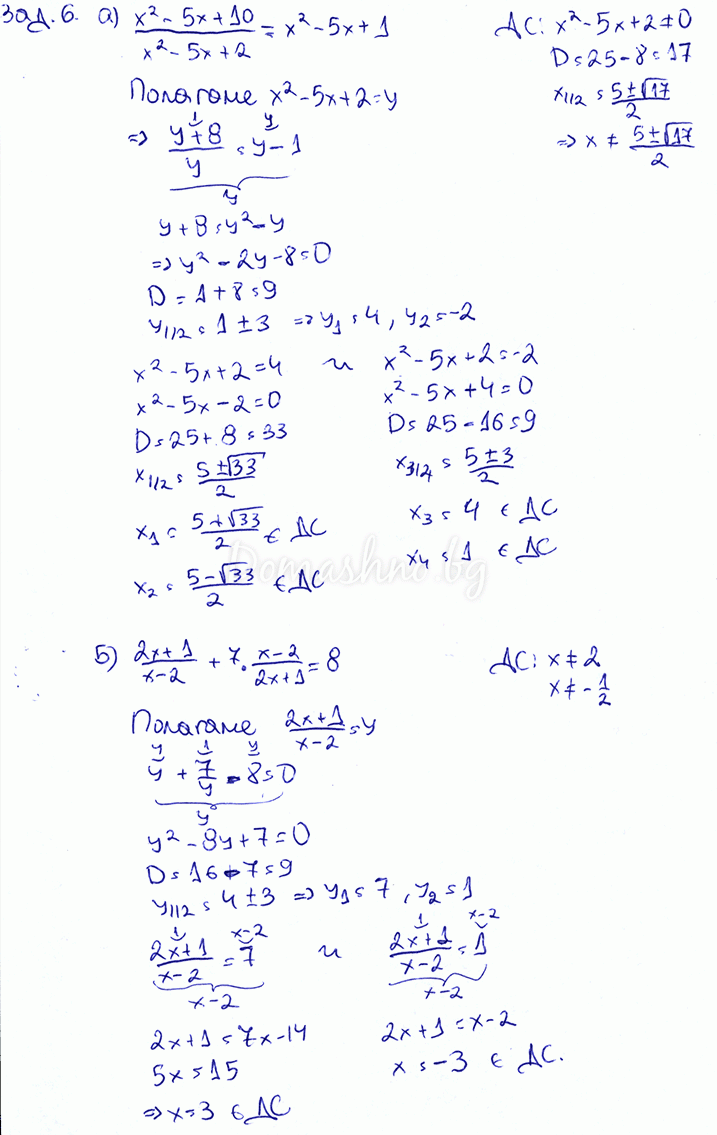 Зад. 6. а) (x² - 5x + 10)/(x² - 5x + 2) = x² - 5x + 1
ДС: x² - 5x + 2 ≠ 0
D = 25 - 8 = 17
x₁/₂ = (5 ± √17)/2
=> x ≠ (5 ± √17)/2
Полагаме x² - 5x + 2 = y
=> (y + 8)/y = y - 1
y + 8 = y² - y
=> y² - 2y - 8 = 0
D = 1 + 8 = 9
y₁/₂ = 1 ± 3 => y₁ = 4, y₂ = -2
x² - 5x + 2 = 4 и x² - 5x + 2 = -2
x² - 5x - 2 = 0
D = 25 + 8 = 33
x₁/₂ = (5 ± √33)/2
x₁ = (5 + √33)/2 ∈ ДС
x₂ = (5 - √33)/2 ∈ ДС
x² - 5x + 4 = 0
D = 25 - 16 = 9
x₃/₄ = (5 ± 3)/2
x₃ = 4 ∈ ДС
x₄ = 1 ∈ ДС
Domashni.bg
б) (2x + 1)/(x - 2) + 7 . (x - 2)/(2x + 1) = 8
ДС: x ≠ 2
x ≠ -1/2
Полагаме (2x + 1)/(x - 2) = y
y + 7/y - 8 = 0
y² - 8y + 7 = 0
D = 16 - 7 = 9
y₁/₂ = 4 ± 3 => y₁ = 7, y₂ = 1
(2x + 1)/(x - 2) = 7 и (2x + 1)/(x - 2) = 1
x - 2
2x + 1 = 7x - 14
5x = 15
=> x = 3 ∈ ДС
x - 2
2x + 1 = x - 2
x = -3 ∈ ДС.